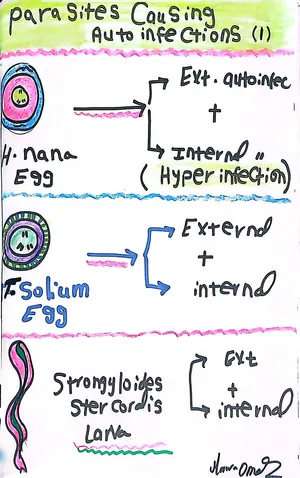 Parasites Causing
Autoinfections (1)
Ext. autoinfec
+
H. nana
Egg
Internal "
(Hyper infection)
External
+
internal
T. Solium
Egg
Ext
+
internal
Strongyloides
Stercordis
Larva